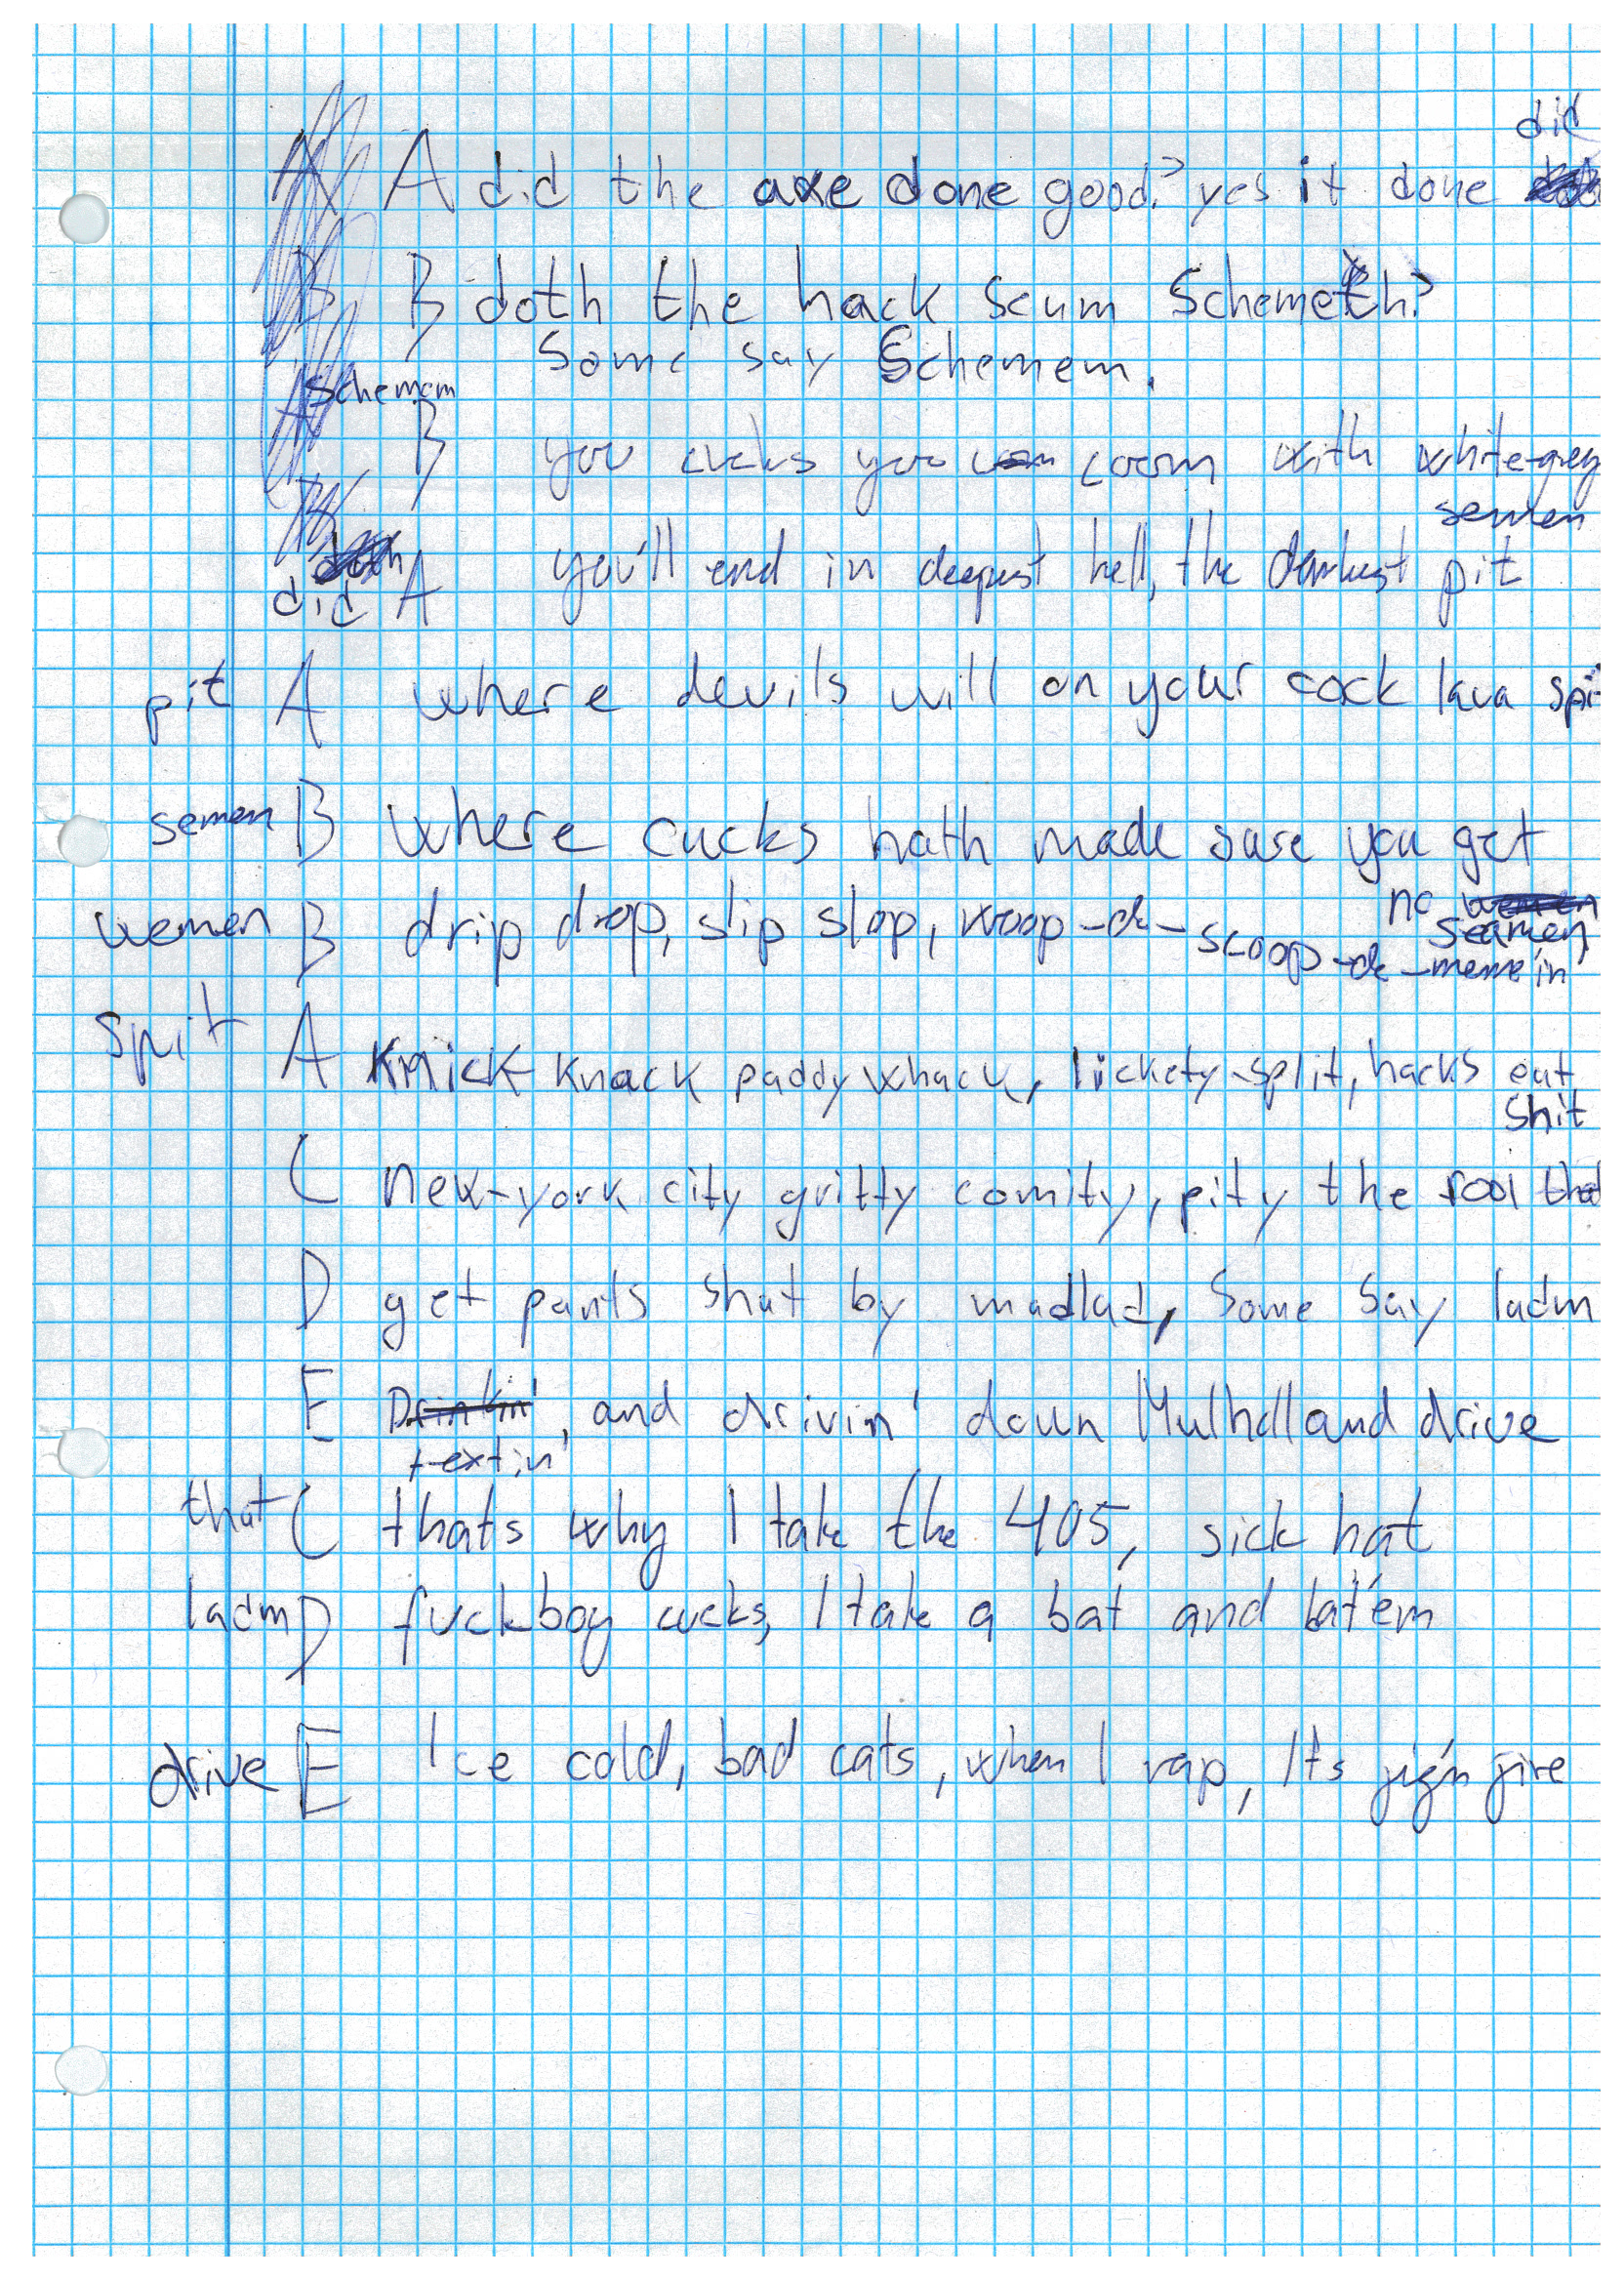 did
A A did the axe done good? yes it done
B B doth the hack scum Schemeth?
Some say Schemem.
schemem
B you cucks you coom with white-grey
semen
did A you'll end in deepest hell, the darkest pit
pit A where devils will on your cock lava spi
semen B where cucks hath made sure you get
no women
seamen
women B drip drop, slip slop, woop-de-scoop-de-meme in
spit A Knick Knack paddy whack, lickety-split, hacks eat
shit
C New-york city gritty comity, pity the fool that
D get pants shat by madlad, Some say ladm
E Drinkin', and drivin' down Mulholland drive
textin'
that C thats why I take the 405, sick hat
ladm D fuckboy cucks, I take a bat and bat'em
drive E Ice cold, bad cats, when I rap, Its jig'n jive